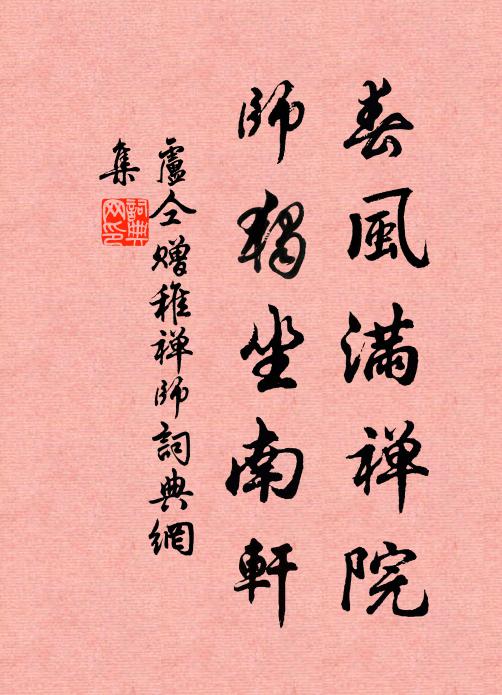 春風滿禪院
師獨坐南軒
盧仝贈稚禪師詞典網
集
詞典
网印